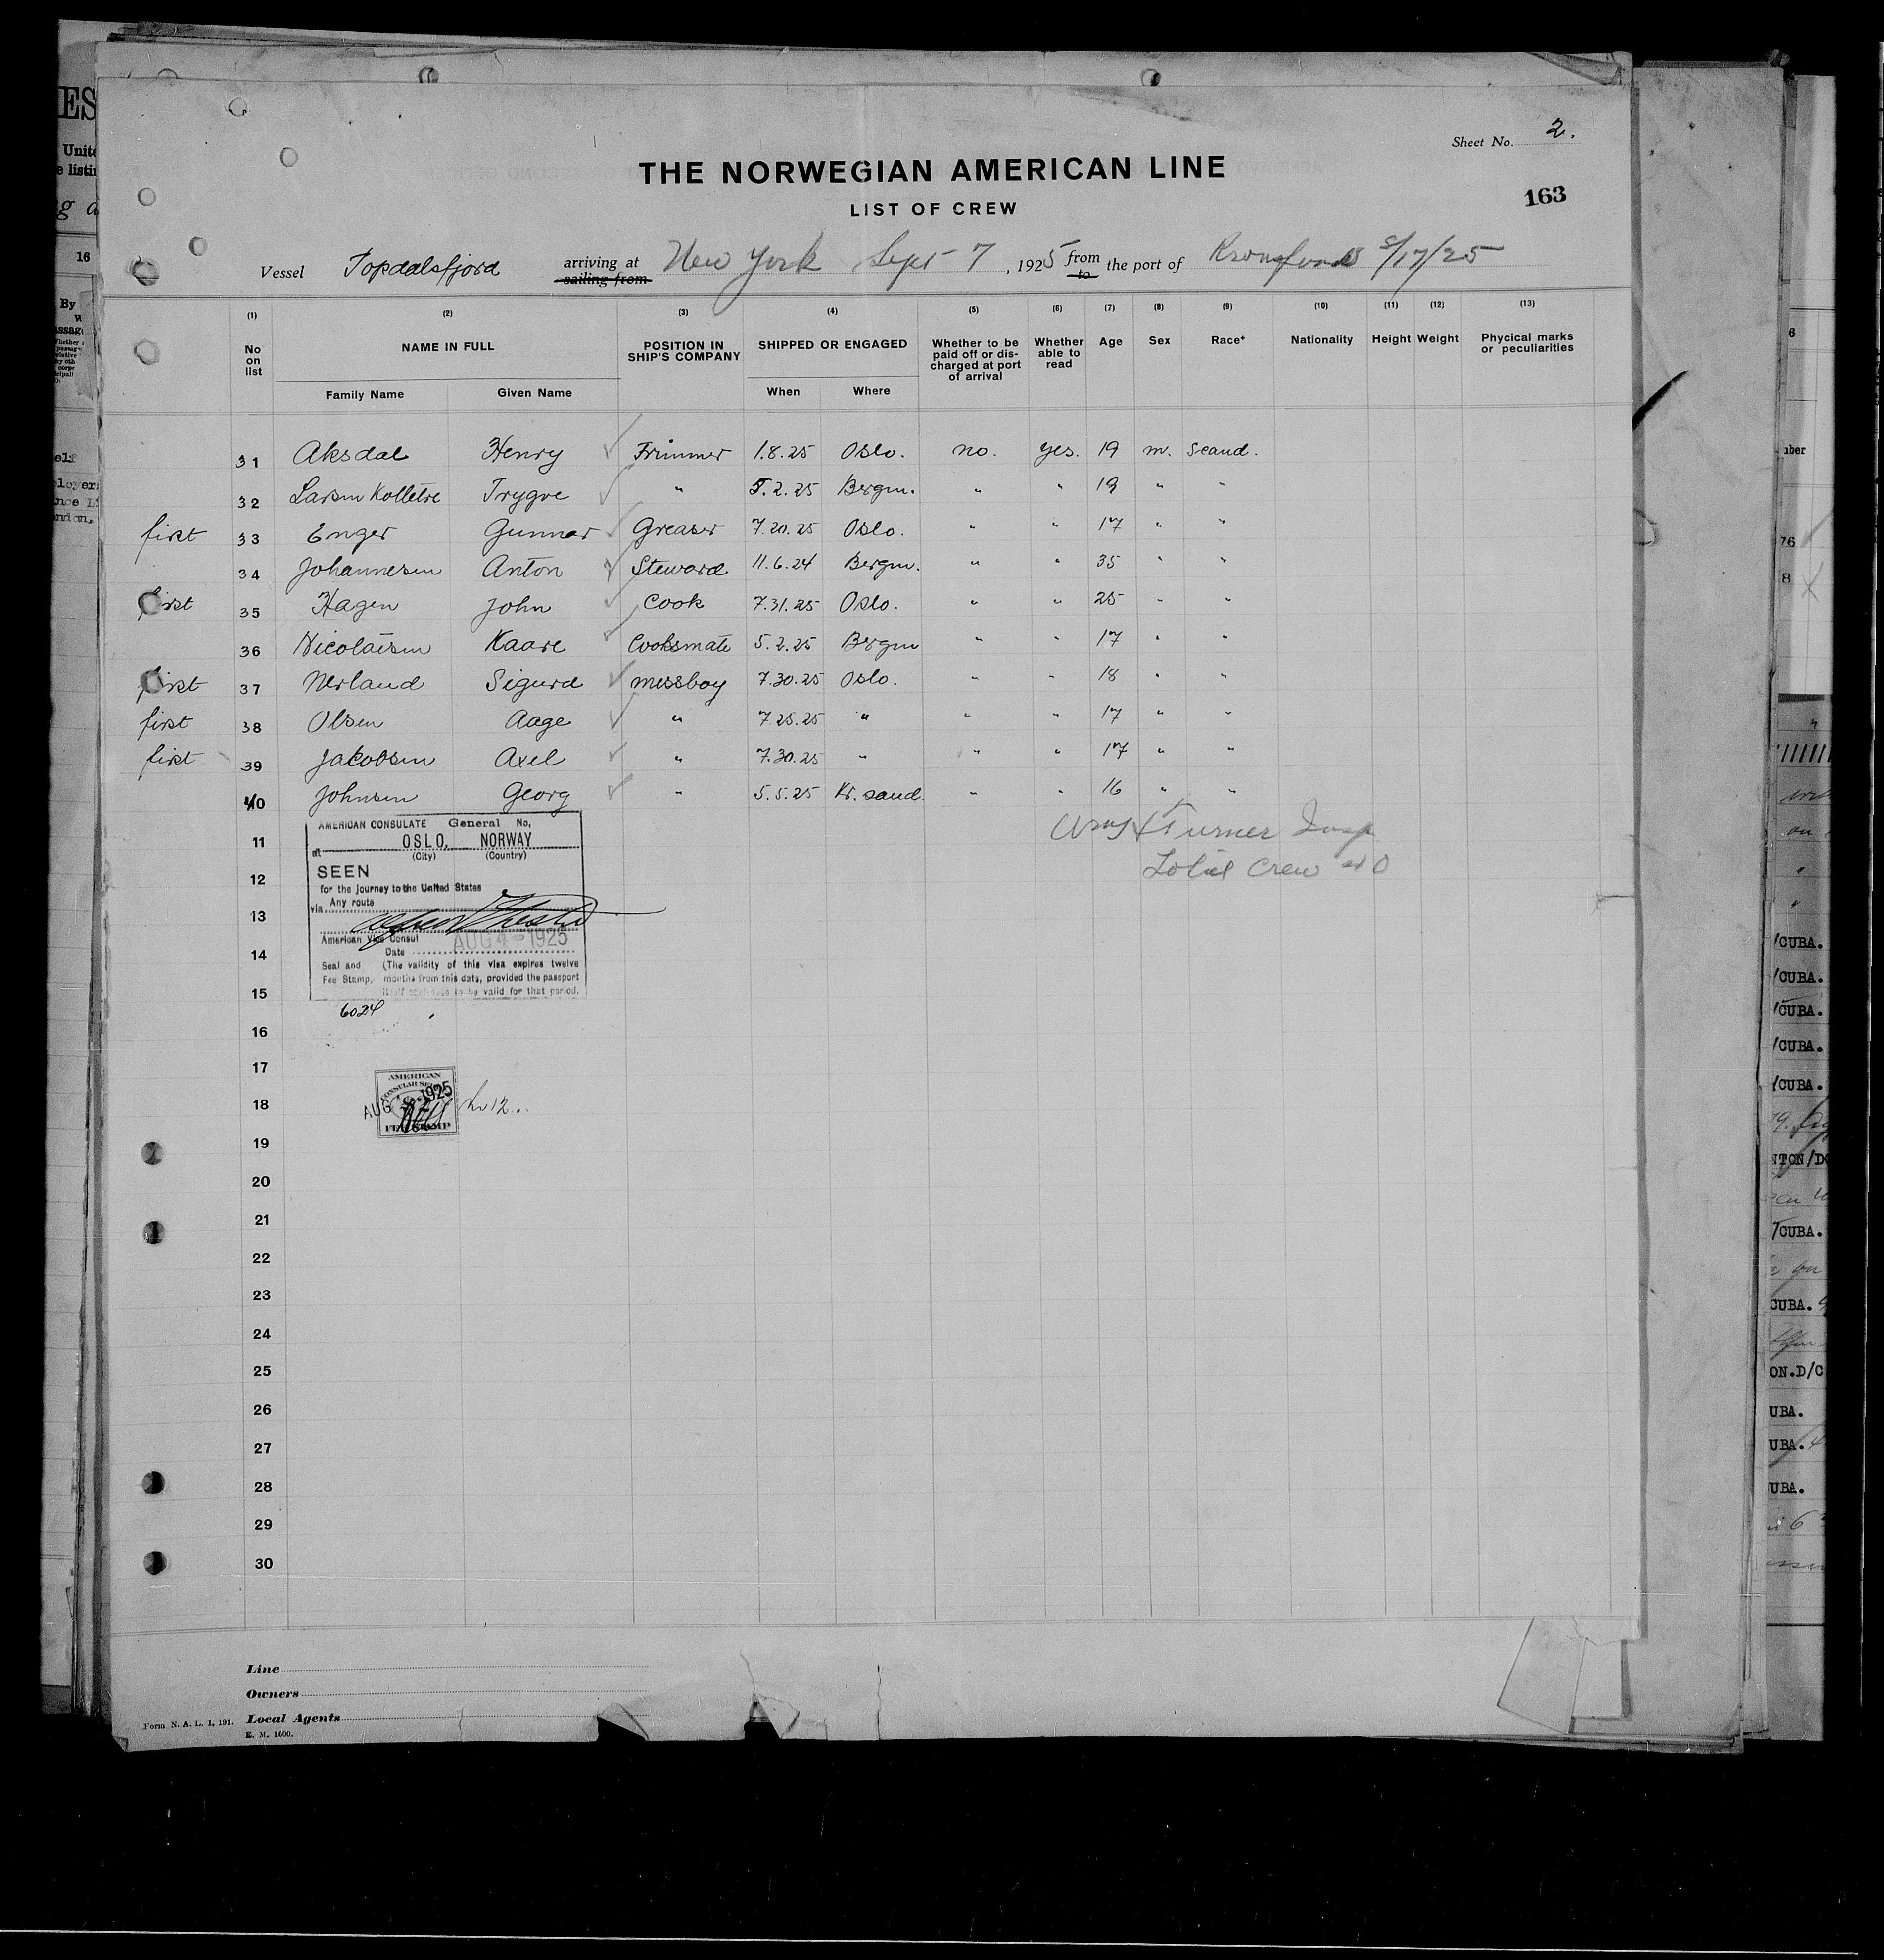 Sheet No. 2.
THE NORWEGIAN AMERICAN LINE
163
LIST OF CREW
Vessel Topdalsfjord arriving at sailing from New York Sept 7, 1925 from to the port of 8/17/25
(1) (2) (3) (4) (5) (6) (7) (8) (9) (10) (11) (12) (13)
No on list NAME IN FULL POSITION IN SHIP'S COMPANY SHIPPED OR ENGAGED Whether to be paid off or discharged at port of arrival Whether able to read Age Sex Race* Nationality Height Weight Phycical marks or peculiarities
Family Name Given Name When Where
31 Aksdal Henry Trimmer 1.8.25 Oslo. no. yes. 19 m. Scand.
32 Larsen Trygve " 5.2.25 Bergen. " " 19 " "
first 33 Enger Gunnar Greaser 7.20.25 Oslo. " " 17 " "
34 Johannesen Anton Steward 11.6.24 Bergen. " " 35 " "
first 35 Hagen John Cook 7.31.25 Oslo. " " 25 " "
36 Nicolaisen Kaare Cooksmate 5.2.25 Bergen " " 17 " "
first 37 Nerland Sigurd messboy 7.30.25 Oslo. " " 18 " "
first 38 Olsen Aage " 7.25.25 " " " 17 " "
first 39 Jakobsen Axel " 7.30.25 " " " 17 " "
40 Johnsen Georg " 5.5.25 Kr. sand. " " 16 " "
Turner Insp
Total Crew 40
AMERICAN CONSULATE General No.
at OSLO, NORWAY
(City) (Country)
SEEN
for the journey to the United States
via Any route
American Vice Consul
Date AUG 4 - 1925
Seal and (The validity of this visa expires twelve
Fee Stamp, months from this date, provided the passport
valid for that period.
6024
AMERICAN
CONSULAR
AUG 1925
FEE STAMP
Kr 12..
11
12
13
14
15
16
17
18
19
20
21
22
23
24
25
26
27
28
29
30
Line
Owners
Local Agents
Form N. A. L. 1, 191.
E. M. 1000.